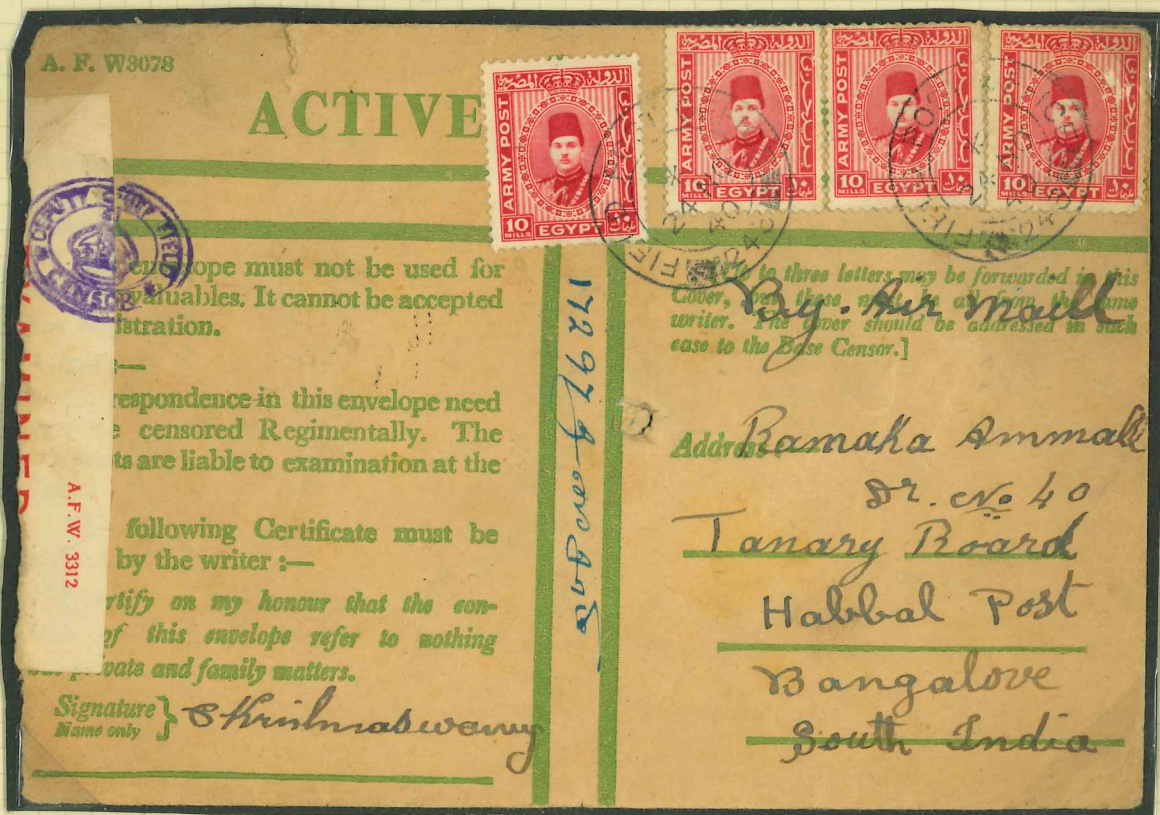 A. F. W3078
ACTIVE
الدولة المصرية
ARMY POST
10 MILLS
EGYPT
الدولة المصرية
ARMY POST
10 MILLS
EGYPT
الدولة المصرية
ARMY POST
10 MILLS
EGYPT
الدولة المصرية
ARMY POST
10 MILLS
EGYPT
FIELD
24
40
DEPUTY CHIEF FIELD
CENSOR
A.F.W. 3312
envelope must not be used for
valuables. It cannot be accepted
stration.
:—
respondence in this envelope need
e censored Regimentally. The
ts are liable to examination at the
following Certificate must be
by the writer :—
rtify on my honour that the con-
of this envelope refer to nothing
private and family matters.
Signature
Name only
Krishnaswamy
17297
to three letters may be forwarded in this
Cover, but these must be all from the same
writer. The cover should be addressed in such
case to the Base Censor.]
By. Air Maill
Address:—
Ramaka Ammall
Dr. No 40
Tanary Board
Habbal Post
Bangalove
South India